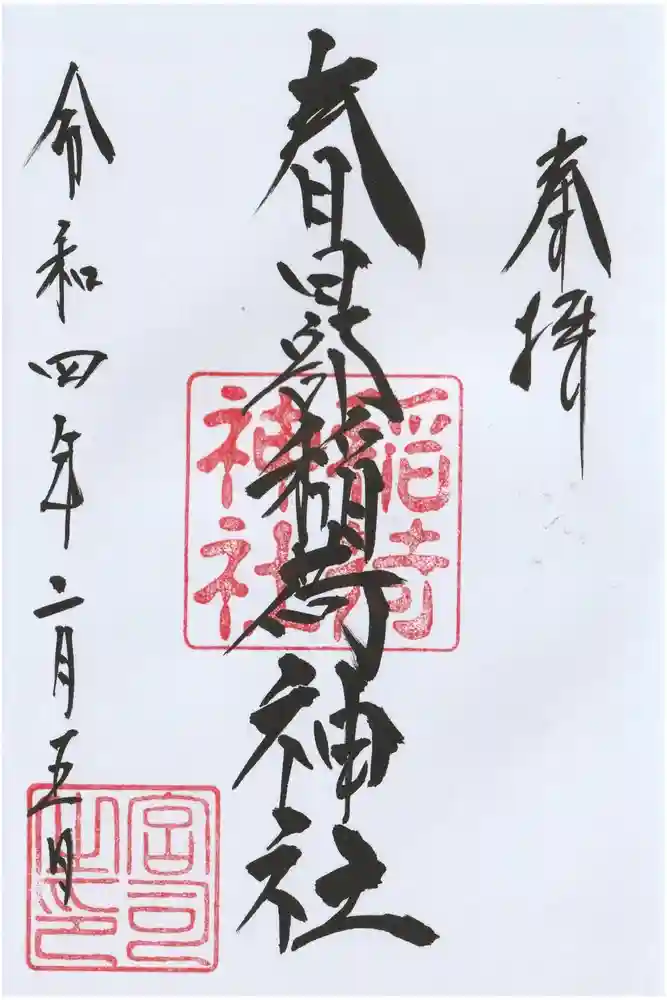 奉拝
春日部稲荷神社
稲荷神社
令和四年二月五日
宮司之印